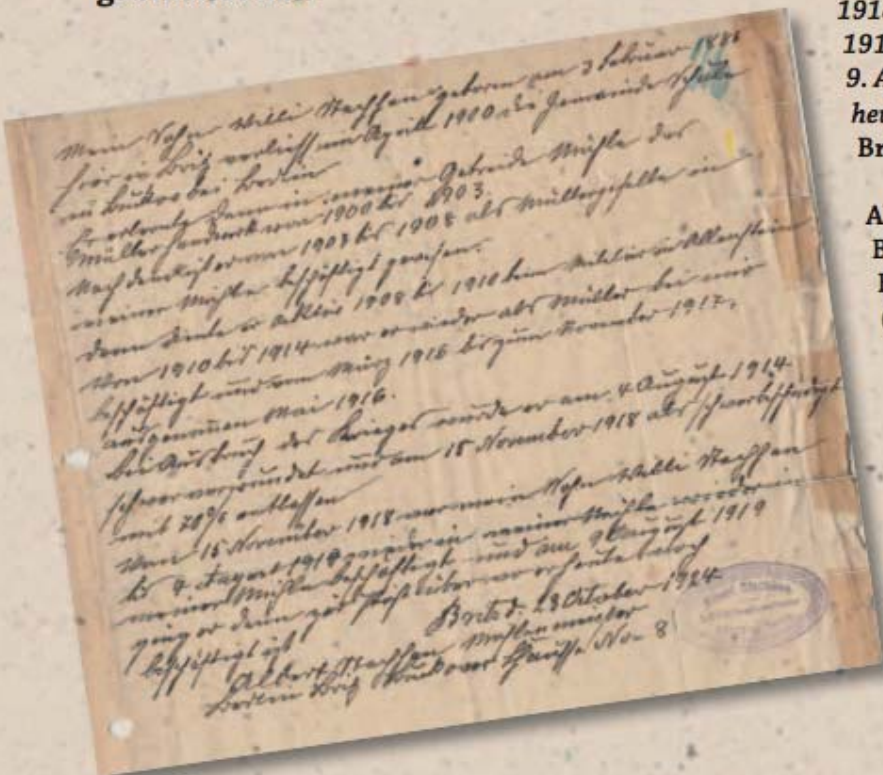 Mein Sohn Willi Stechhan geboren am 3 Februar 1886
hier in Britz verliess im April 1900 die Gemeinde Schule
in Buckow bei Berlin
Er erlernte dann in meiner Getreide Mühle das
Müller Handwerk von 1900 bis 1903.
Nach dem ist er von 1903 bis 1908 als Müllergeselle in
meiner Mühle beschäftigt gewesen.
dann diente er 1908 bis 1910 beim Militär in Allenstein
Von 1910 bis 1914 war er wieder als Müller bei mir
beschäftigt und vom März 1916 bis zum November 1917.
ausgenommen Mai 1916.
bei Ausbruch des Krieges wurde er am 4 August 1914
schwer verwundet und am 15 November 1918 als schwerbeschädigt
mit 70% entlassen
Vom 15 November 1918 war mein Sohn Willi Stechhan
bis 9. August 1919 wieder in
meiner Mühle beschäftigt und am 9 August 1919
ging er dann zur Post über wo er heute noch
beschäftigt ist
Britz d. 23 October 1924
Albert Stechhan Mühlenmeister
Berlin Britz Buckower Chaussee No 8
191
191
9. A
heu
Br
A
B